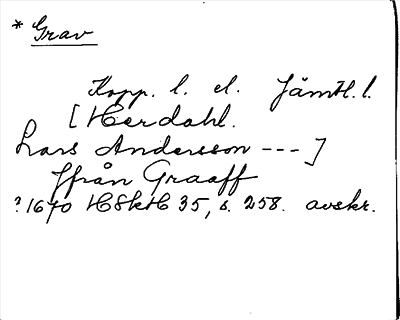 * Grav
Kopp. l. el. Jämtl. l.
[Herdahl.
Lars Andersson --- ]
ffrån Graaff
?1670 HSkH 35, s. 258. avskr.